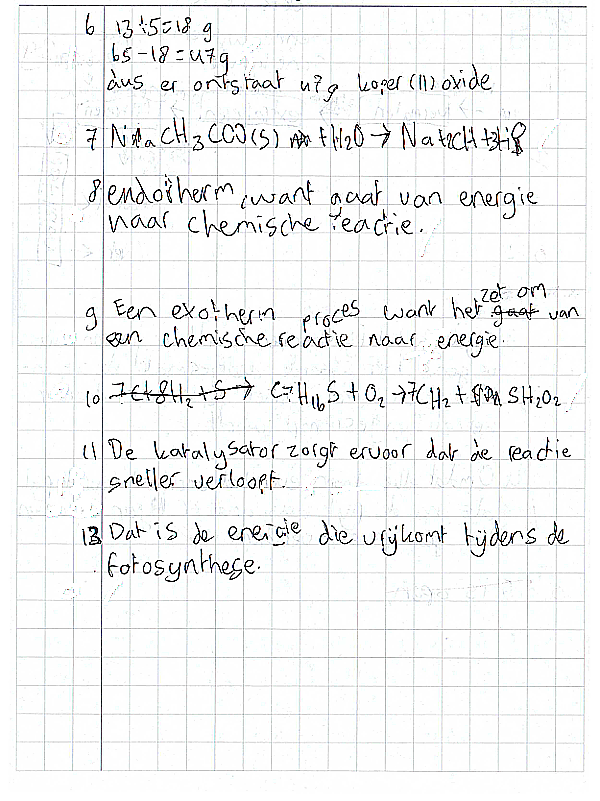 6 13+5=18 g
65-18=47g
dus er ontstaat 47g koper(II)oxide
7 NaCH3COO(s) + H2O → Na+2CH+3H
8 endotherm, want gaat van energie
naar chemische reactie.
9 Een exotherm proces want het zet om gaat van
een chemische reactie naar energie.
10 7CH8H2+S→ C7H16S+O2→7CH2+ SH2O2
11 De katalysator zorgt ervoor dat de reactie
sneller verloopt.
13 Dat is de energie die vrijkomt tijdens de
fotosynthese.